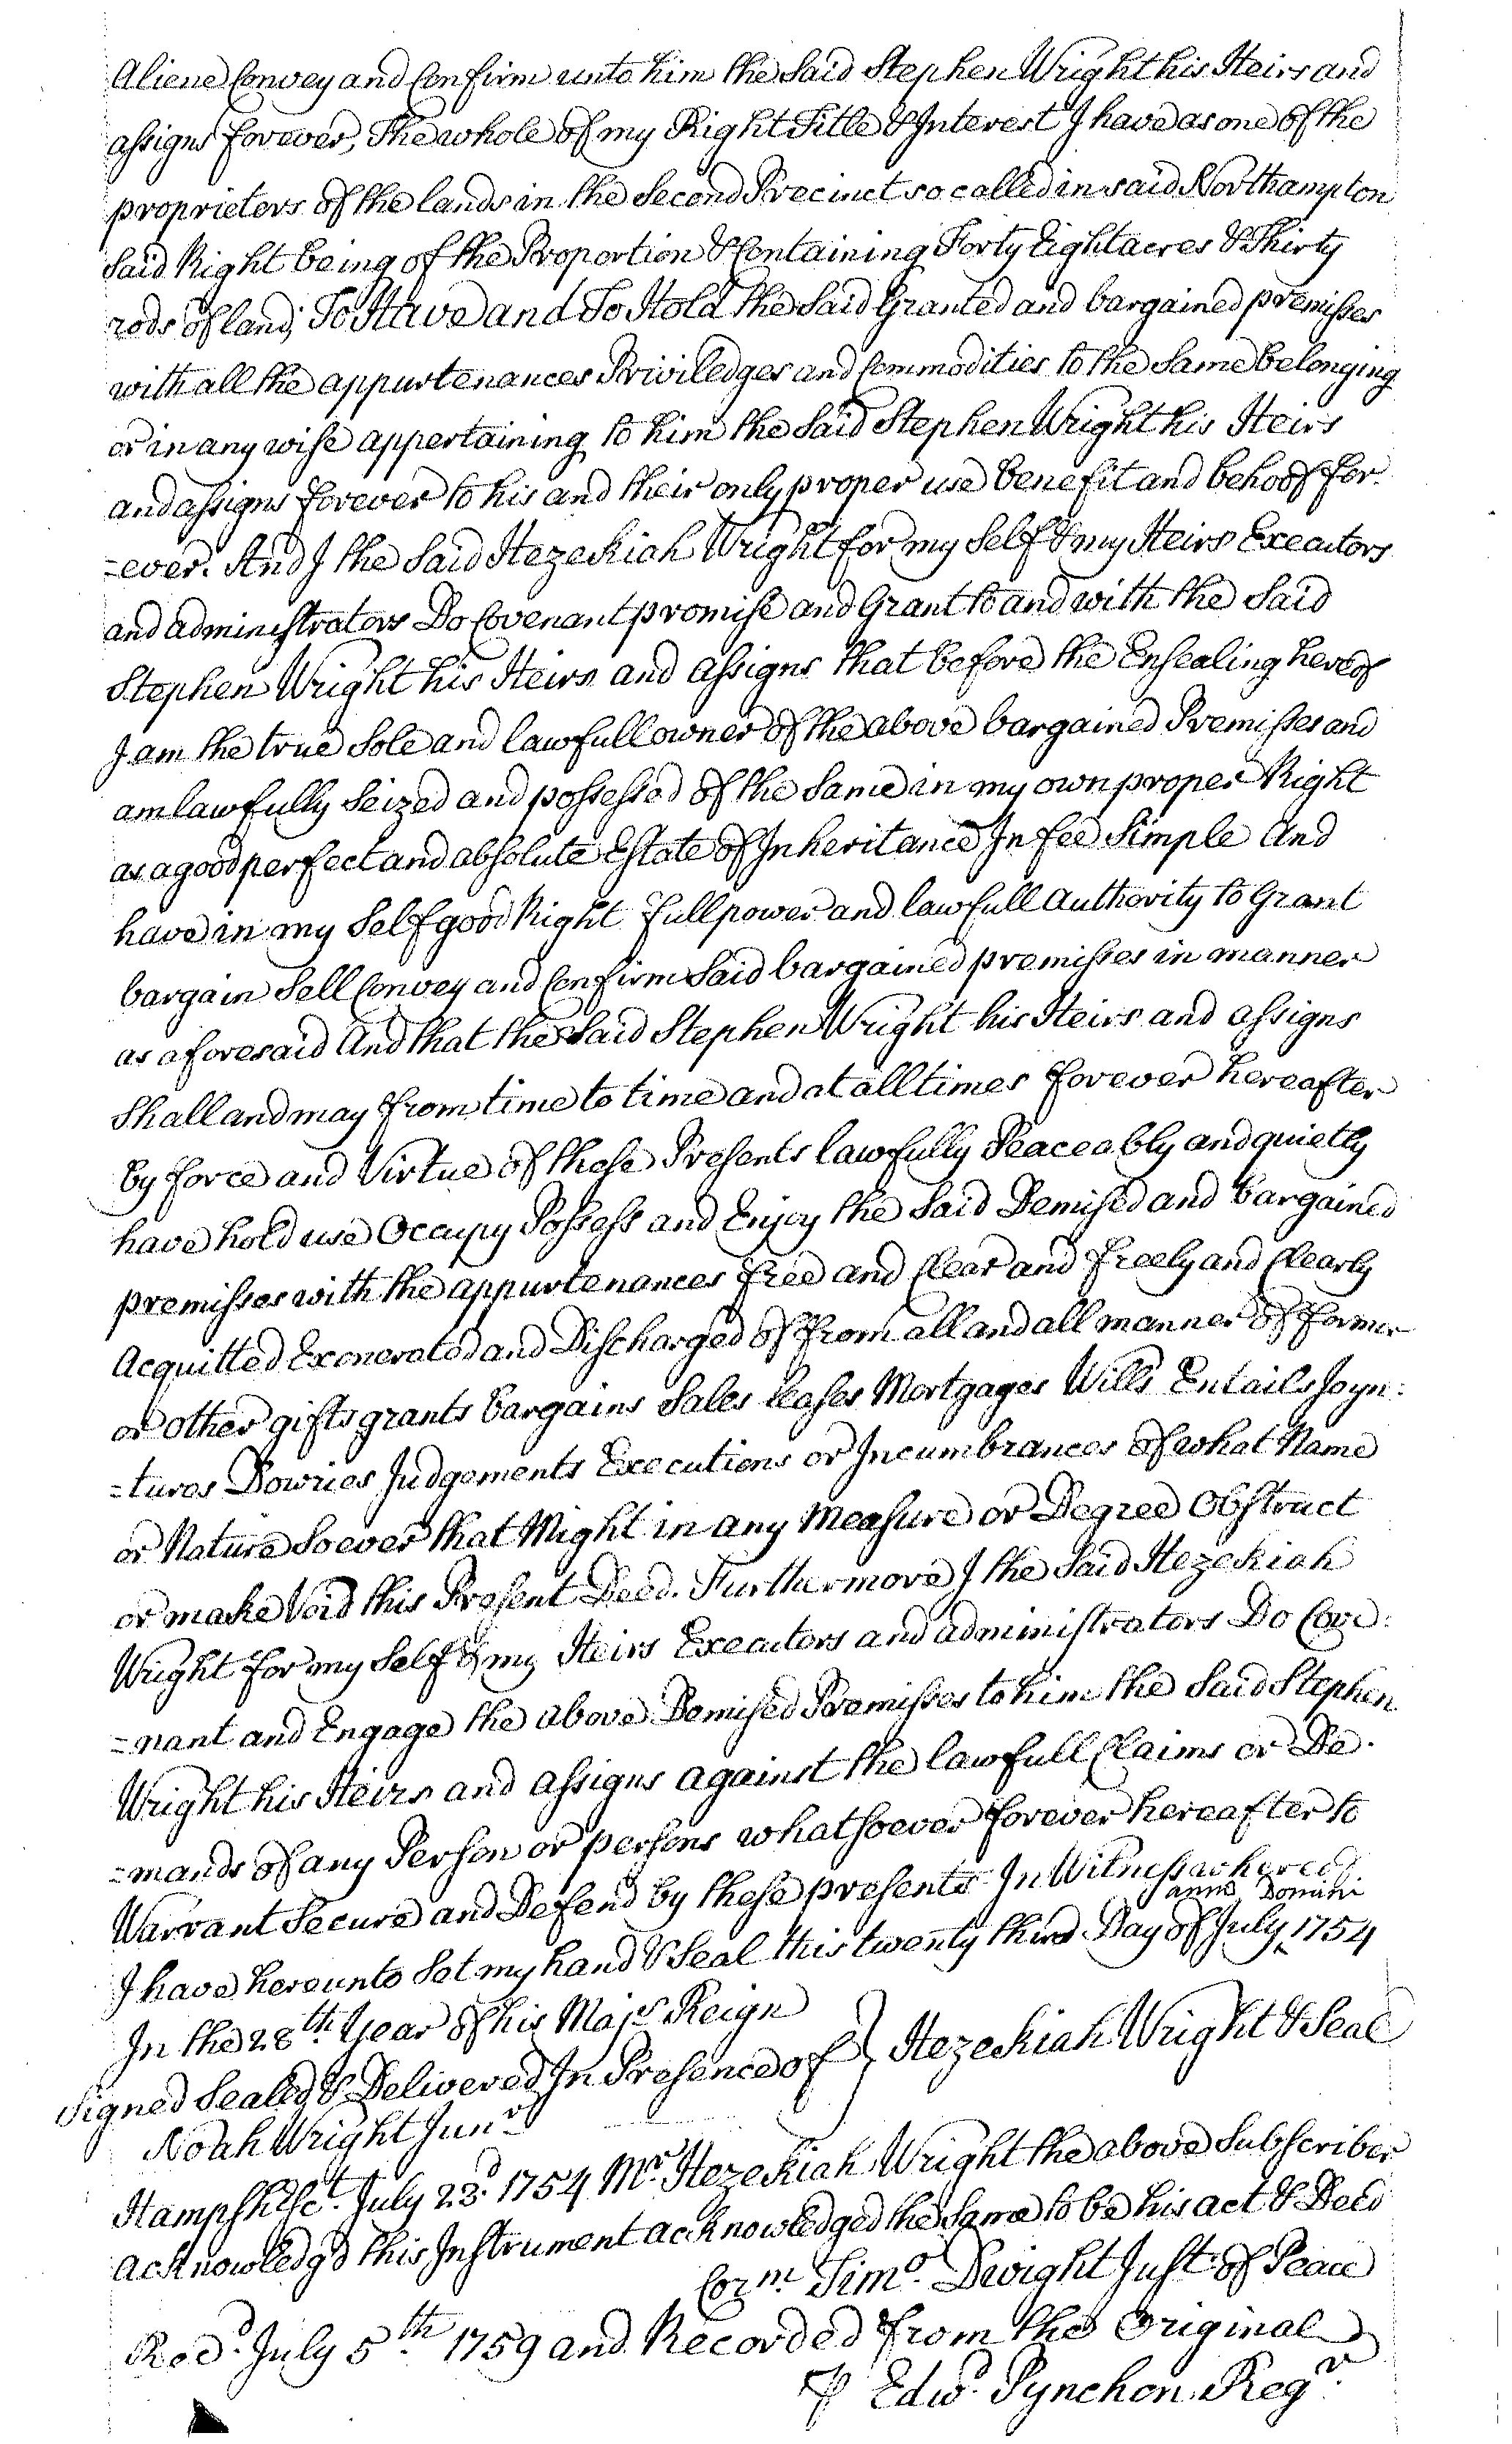 Aliene Convey and Confirm unto him the Said Stephen Wright his Heirs and
assigns forever, The whole of my Right Title & Interest I have as one of the
proprietors of the lands in the Second Precinct so called in said Northampton
Said Right being of the Proportion & Containing Forty Eight acres & Thirty
rods of land; To Have and To Hold the Said Granted and bargained premisses
with all the appurtenances Priviledges and Commodities to the Same belonging
or in any wise appertaining to him the Said Stephen Wright his Heirs
and assigns forever to his and their only proper use benefit and behoof for
=ever. And I the Said Hezekiah Wright for my Self & my Heirs Executors
and administrators Do Covenant promise and Grant to and with the Said
Stephen Wright his Heirs and assigns that before the Ensealing hereof
I am the true Sole and lawfull owner of the above bargained Premisses and
am lawfully Seized and possessed of the Same in my own proper Right
as a good perfect and absolute Estate of Inheritance In fee Simple And
have in my Self good Right full power and lawfull Authority to Grant
bargain Sell Convey and Confirm Said bargained premisses in manner
as aforesaid And that the Said Stephen Wright his Heirs and assigns
Shall and may from time to time and at all times forever hereafter
by force and Virtue of these Presents lawfully Peaceably and quietly
have hold use Occupy Possess and Enjoy the Said Demised and bargained
premisses with the appurtenances free and Clear and freely and Clearly
Acquitted Exonerated and Discharged of from all and all manner of former
or other gifts grants bargains Sales leases Mortgages Wills Entails Joyn:
=tures Dowries Judgements Executions or Incumbrances of what Name
or Nature Soever that Might in any Measure or Degree Obstruct
or make Void this Present Deed. Furthermore I the Said Hezekiah
Wright for my Self & my Heirs Executors and administrators Do Cove:
=nant and Engage the above Demised Premisses to him the Said Stephen
Wright his Heirs and assigns against the lawfull Claims or De-
=mands of any Person or persons whatsoever forever hereafter to
Warrant Secure and Defend by these presents In Witness whereof
anno Domini
I have hereunto Set my hand & Seal this twenty third Day of July 1754
In the 28th Year of his Majs Reign
Signed Sealed & Delivered In Presence of } Hezekiah Wright & Seal
Noah Wright Junr
Hampshr Sct. July 23d 1754 Mr Hezekiah Wright the above Subscriber
acknowledgd this Instrument acknowledged the Same to be his act & Deed
Corm Timo Dwight Just of Peace
Recd July 5th 1759 and Recorded from the Original
⅌ Edwd Pynchon Regr